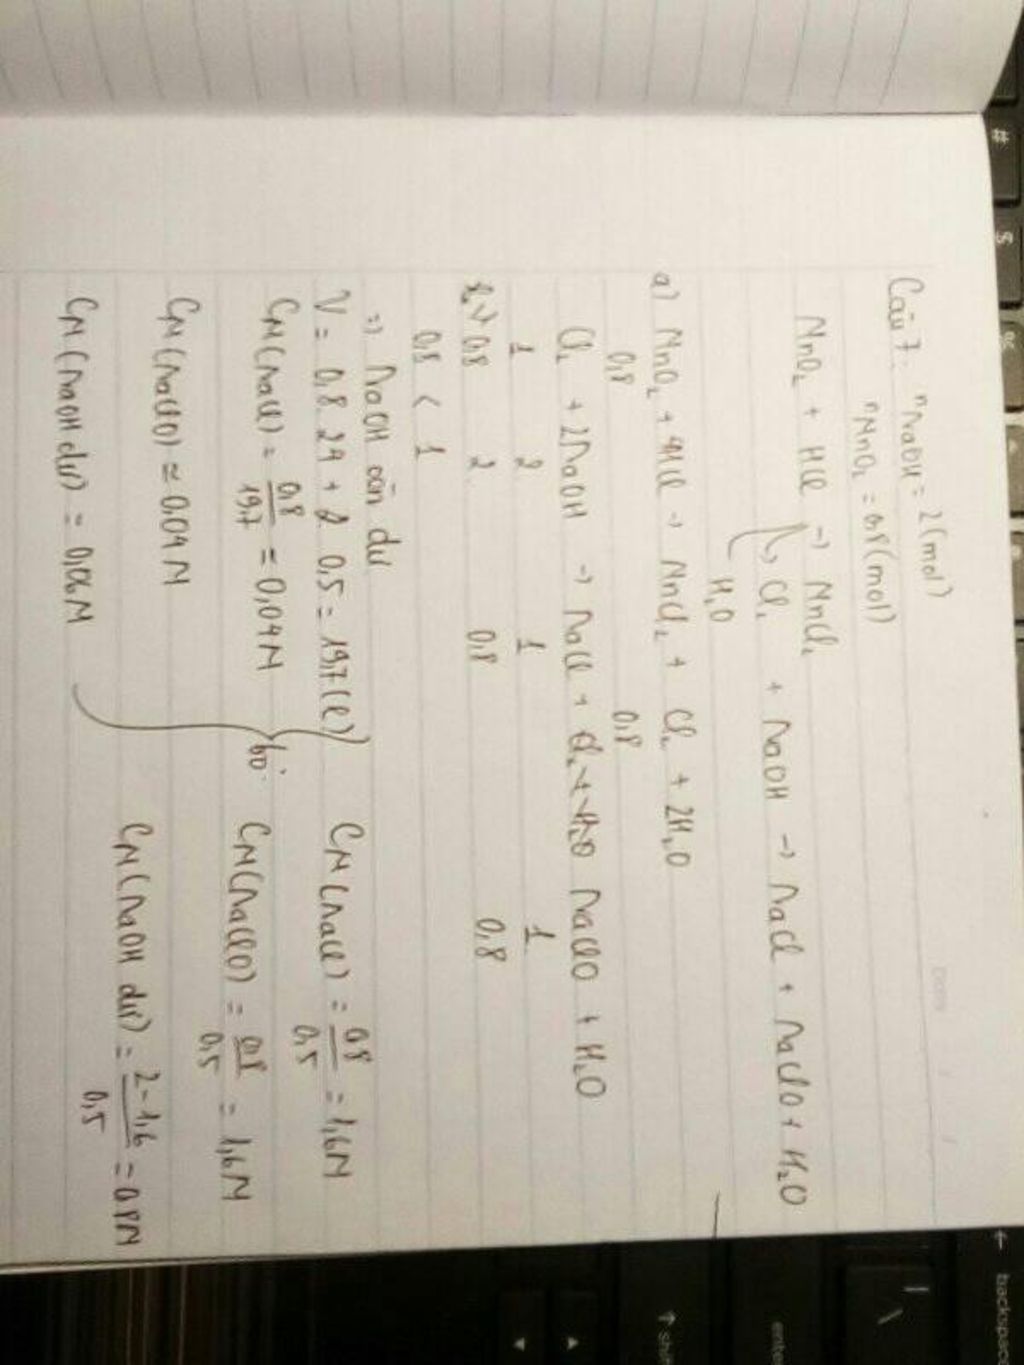 Câu 7. nNaOH = 2 (mol)
nMnO₂ = 0,8 (mol)
MnO₂ + HCl → MnCl₂
↳ Cl₂ + NaOH → NaCl + NaClO + H₂O
H₂O
a) MnO₂ + 4HCl → MnCl₂ + Cl₂ + 2H₂O
0,8 0,8
Cl₂ + 2NaOH → NaCl + NaClO + H₂O
1 2 1 1
0,8 2 0,8 0,8
0,8 < 1
=) NaOH còn dư
V = 0,8 . 24 + 0,5 = 19,7 (l)
CM (NaCl) = 0,8/19,7 = 0,04M
CM (NaClO) = 0,04M
CM (NaOH dư) = 0,06M
bỏ
CM (NaCl) = 0,8/0,5 = 1,6M
CM (NaClO) = 0,8/0,5 = 1,6M
CM (NaOH dư) = 2-1,6/0,5 = 0,8M
#
$
backspace
enter
shift